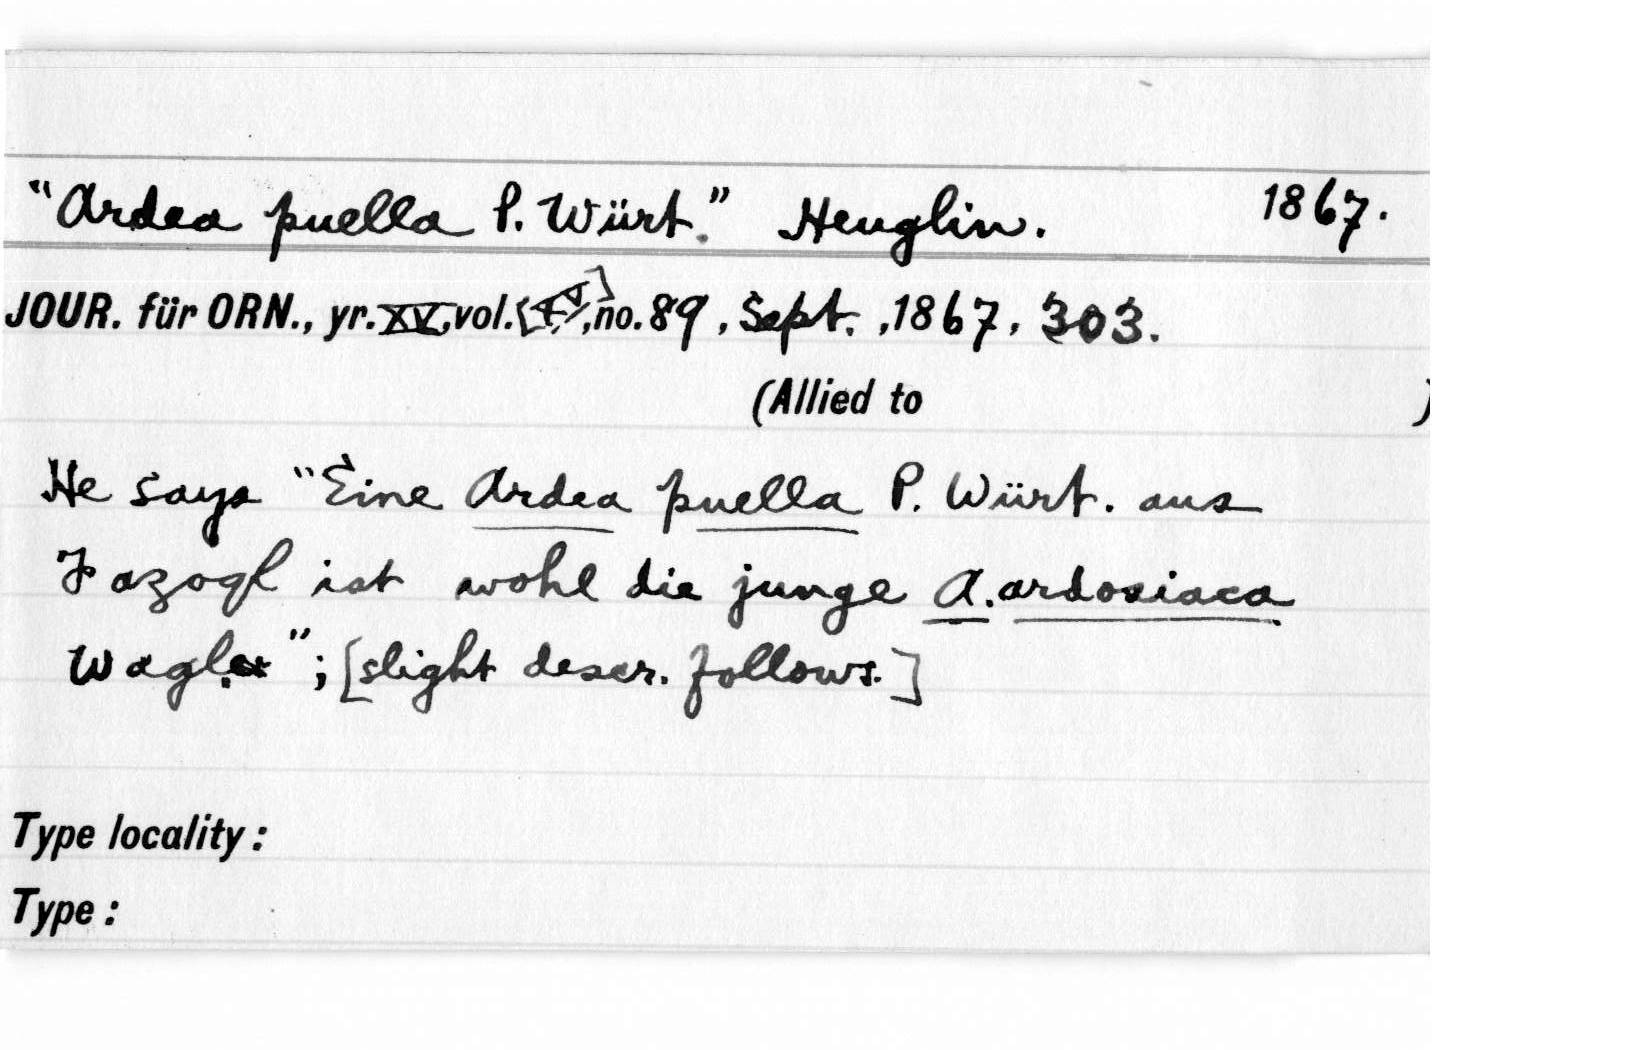 "Ardea puella P. Würt." Heuglin. 1867.
JOUR. für ORN., yr. XV, vol. [XV], no. 89, Sept., 1867, 303.
(Allied to )
He says "Eine Ardea puella P. Würt. aus
Fazogl ist wohl die junge A. ardosiaca
Wagler"; [slight descr. follows.]
Type locality:
Type: